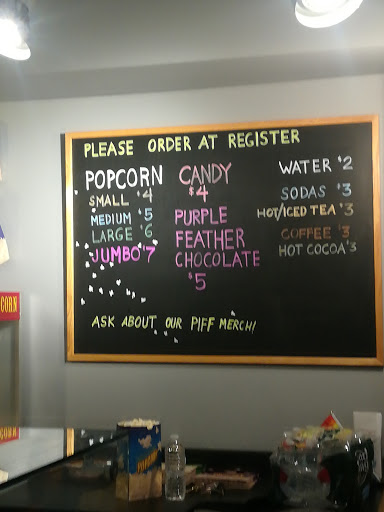 PLEASE ORDER AT REGISTER
POPCORN
SMALL $4
MEDIUM $5
LARGE $6
JUMBO $7
CANDY
$4
PURPLE
FEATHER
CHOCOLATE
$5
WATER $2
SODAS $3
HOT/ICED TEA $3
COFFEE $3
HOT COCOA $3
ASK ABOUT OUR PIFF MERCH!
CORN
CORN